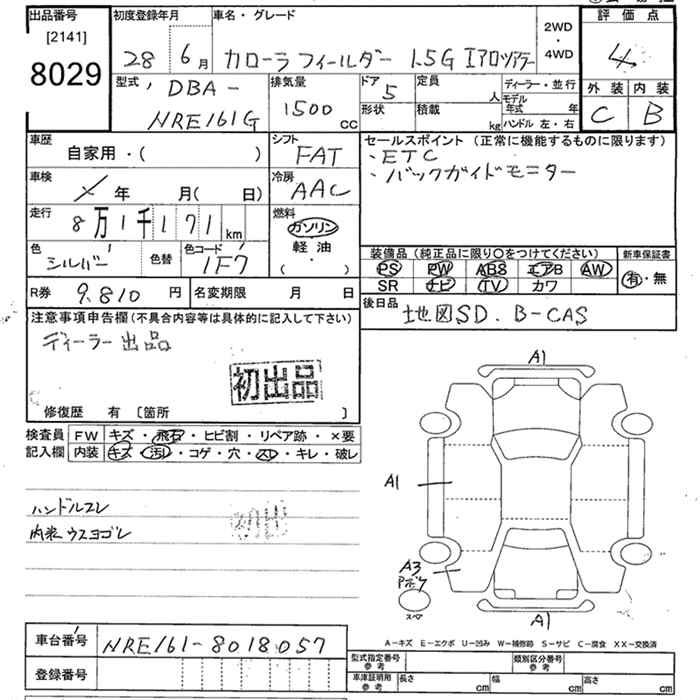 出品番号
[2141]
8029
初度登録年月
28年 6月
車名・グレード
カローラフィールダー 1.5G エアロツアラー
2WD
・
4WD
評価点
4
外装 内装
C B
型式
DBA-
NRE161G
排気量
1500
cc
ドア
5
形状
定員
人
積載
kg
ディーラー・並行
モデル
年式 年
ハンドル 左・右
車歴
自家用・( )
シフト
FAT
セールスポイント (正常に機能するものに限ります)
・ETC
・バックガイドモニター
車検
年 月( 日)
冷房
AAC
走行
8万1千171km
燃料
ガソリン
軽油
( ・ )
色
シルバー
色替
色コード
1F7
装備品 (純正品に限り○をつけてください)
PS PW ABS エアB AW
SR ナビ TV カワ
新車保証書
有・無
R券 9,810 円
名変期限 月 日
後日品
地図SD. B-CAS
注意事項申告欄(不具合内容等は具体的に記入して下さい)
ディーラー出品
初出品
修復歴 有 [箇所 ]
検査員
記入欄
FW キズ・飛石・ヒビ割・リペア跡・×要
内装 キズ・汚レ・コゲ・穴・スレ・キレ・破レ
ハンドルスレ
内装ウスヨゴレ
A1
A1
A3
スペア
A1
A-キズ E-エクボ U-凹み W-補修跡 S-サビ C-腐食 XX-交換済
車台番号
NRE161-8018057
登録番号
型式指定番号
参考
類別区分番号
参考
車庫証明用
参考
長さ cm
幅 cm
高さ cm